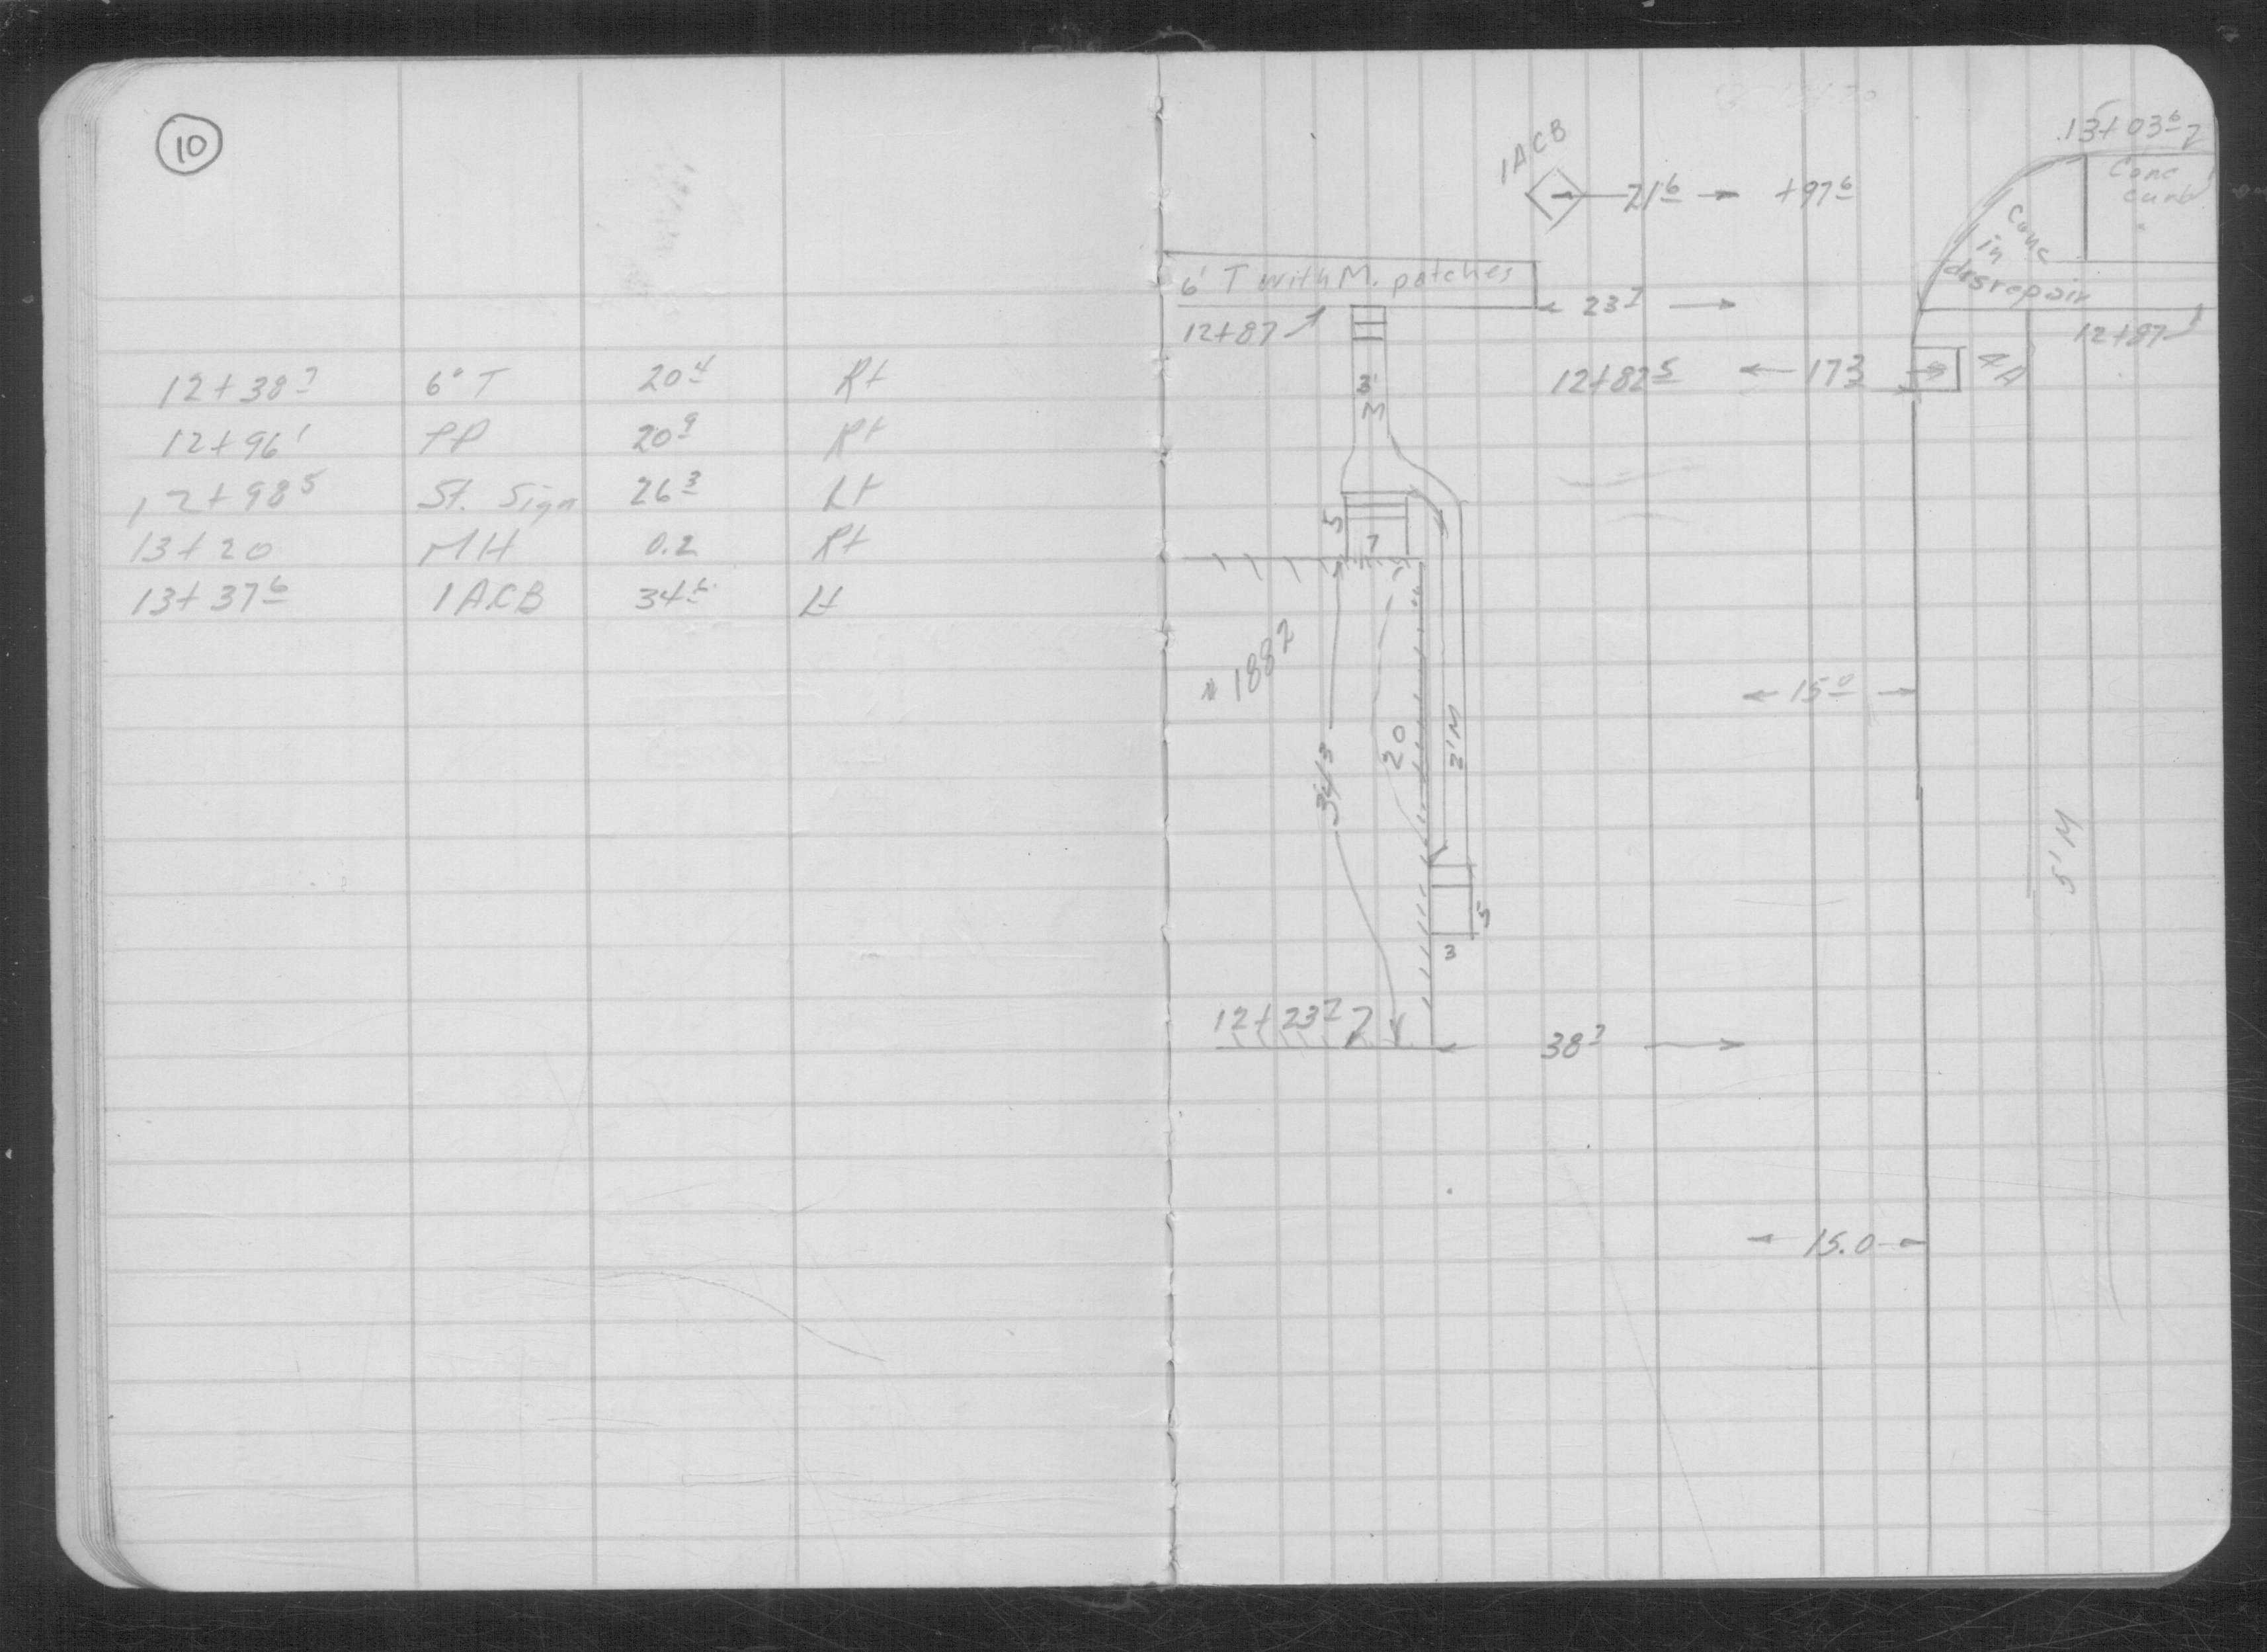 10
12+38⁷ 6" T 20⁴ Rt
12+96¹ PP 20⁹ Rt
12+98⁵ St. Sign 26³ Lt
13+20 MH 0.2 Rt
13+37⁶ 1ACB 34⁶ Lt
13+03⁶
1ACB
21⁶ +97⁶
Conc
curb
Conc
in
disrepair
6' T with M. patches
23⁷
12+87
12+87
12+82⁵ 17³ 4A
3'
M
5
7
# 1882
15⁰
34⁵
20
2'M
5'M
5
3
12+23⁷
38⁷
15.0